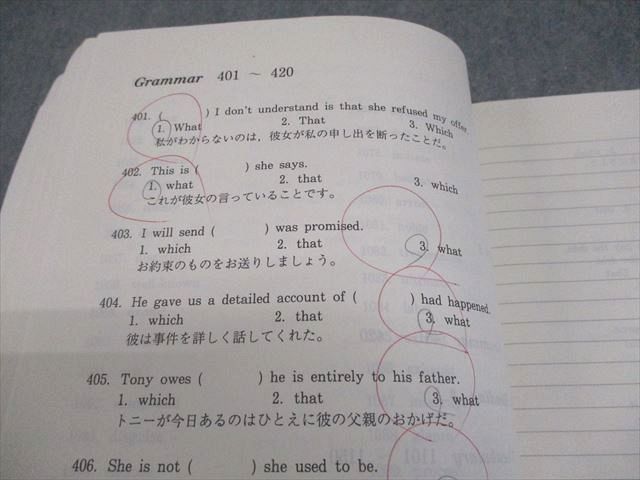 Grammar 401 ~ 420
401. ( ) I don't understand is that she refused my offer.
1. What 2. That 3. Which
私がわからないのは，彼女が私の申し出を断ったことだ。
402. This is ( ) she says.
1. what 2. that 3. which
これが彼女の言っていることです。
403. I will send ( ) was promised.
1. which 2. that 3. what
お約束のものをお送りしましょう。
404. He gave us a detailed account of ( ) had happened.
1. which 2. that 3. what
彼は事件を詳しく話してくれた。
405. Tony owes ( ) he is entirely to his father.
1. which 2. that 3. what
トニーが今日あるのはひとえに彼の父親のおかげだ。
406. She is not ( ) she used to be.